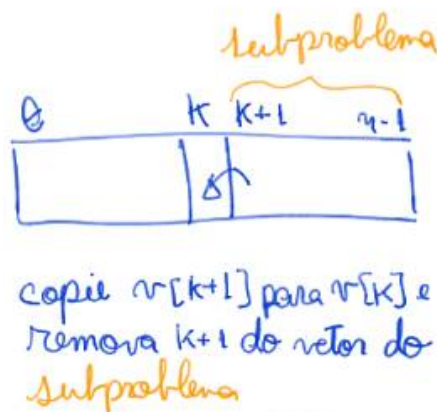 subproblema
0 k k+1 n-1
copie v[k+1] para v[k] e
remova k+1 do vetor do
subproblema